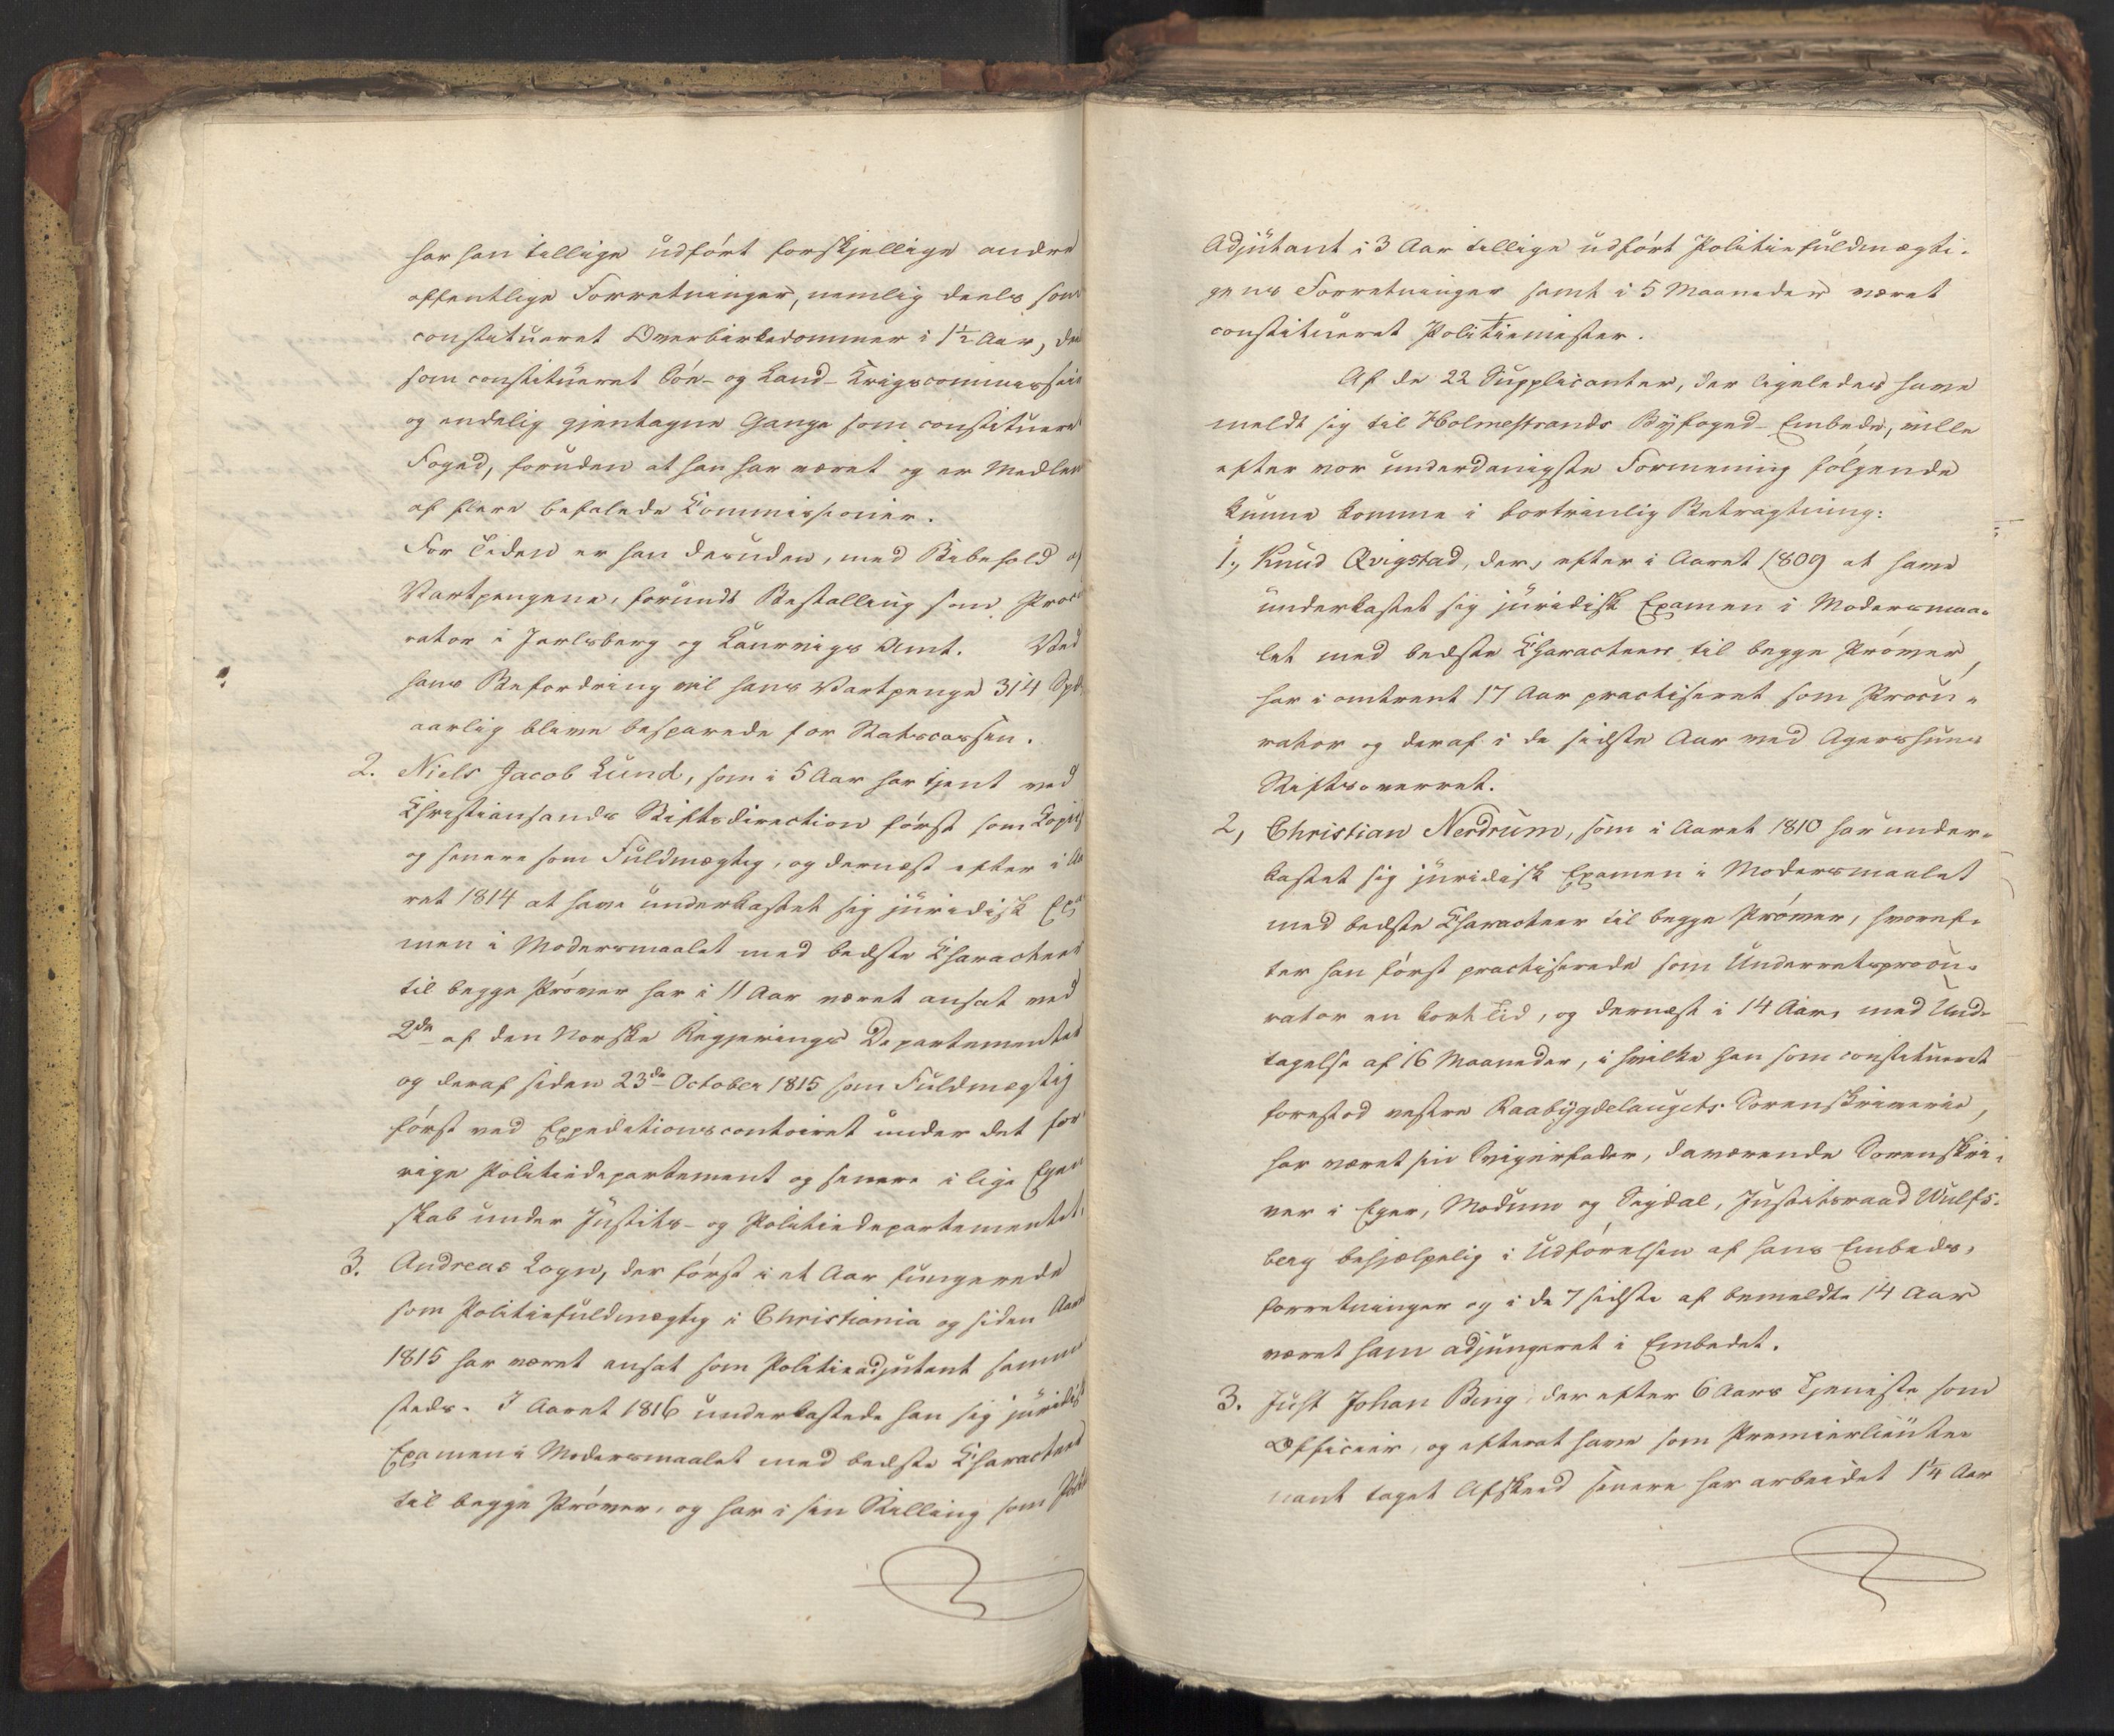 har han tillige udført forskjellige andre
offentlige Forretninger, nemlig deels som
constitueret Overbirkedommer i 1½ Aar, deels
som constitueret Søe- og Land-Krigscommissair
og endelig gjentagne Gange som constitueret
Foged, foruden at han har været og er Medlem
af flere befalede Commissioner.
For Tiden er han desuden, med Bibehold af
Vartpengene, forundt Bestalling som Procu
rator i Jarlsberg og Laurvigs Amt. Ved
hans Befordring vil hans Vartpenge 314 Spd
aarlig blive besparede for Statscassen.
2. Niels Jacob Lund, som i 5 Aar har tjent ved
Christiansands Stiftsdirection først som Copiist
og senere som Fuldmægtig, og dernæst efter i Aa
ret 1814 at have underkastet sig juridisk Exa
men i Modersmaalet med bedste Characteer
til begge Prøver har i 11 Aar været ansat ved
2de af den Norske Regjerings Departementer
og deraf siden 23de October 1815 som Fuldmægtig
først ved Expeditionscontoiret under det for
rige Politiedepartement og senere i lige Egen
skab under Justits- og Politiedepartementet.
3. Andreas Rogn, der først i et Aar fungerede
som Politiefuldmægtig i Christiania og siden Aaret
1815 har været ansat som Politieadjutant samme
steds. I Aaret 1816 underkastede han sig juridisk
Examen i Modersmaalet med bedste Characteer
til begge Prøver, og har i sin Stilling som Politie
Adjutant i 3 Aar tillige udført Politiefuldmægti-
gens Forretninger samt i 5 Maaneder været
constitueret Politiemester.
Af de 22 Supplicanter, der ligeledes have
meldt sig til Holmestrands Byfoged-Embede, ville
efter vor underdanigste Formening følgende
kunne komme i fortrinlig Betragtning:
1., Knud Qvigstad, der, efter i Aaret 1809 at have
underkastet sig juridisk Examen i Modersmaa-
let med bedste Characteer til begge Prøver,
har i omtrent 17 Aar practiseret som Procu-
rator og deraf i de sidste Aar ved Agershuus
Stiftsoverret.
2, Christian Nerdrum, som i Aaret 1810 har under-
kastet sig juridisk Examen i Modersmaalet
med bedste Characteer til begge Prøver, hvoref-
ter han først practiserede som Underretsprocu-
rator en kort Tid, og dernæst i 14 Aar, med Und-
tagelse af 16 Maaneder, i hvilke han som constitueret
forestod vestre Raabygdelaugets Sorenskriverie,
har været sin Svigerfader, daværende Sorenskri-
ver i Eger, Modum og Sigdal, Justitsraad Wulfs-
berg behjælpelig i Udførelsen af hans Embeds-
forretninger og i de 7 sidste af bemeldte 14 Aar
været ham adjungeret i Embedet.
3. Just Johan Bing, der efter 6 Aars Tjeneste som
Officeer, og efterat have som Premierlieute-
nant taget Afskeed senere har arbeidet 1¼ Aar